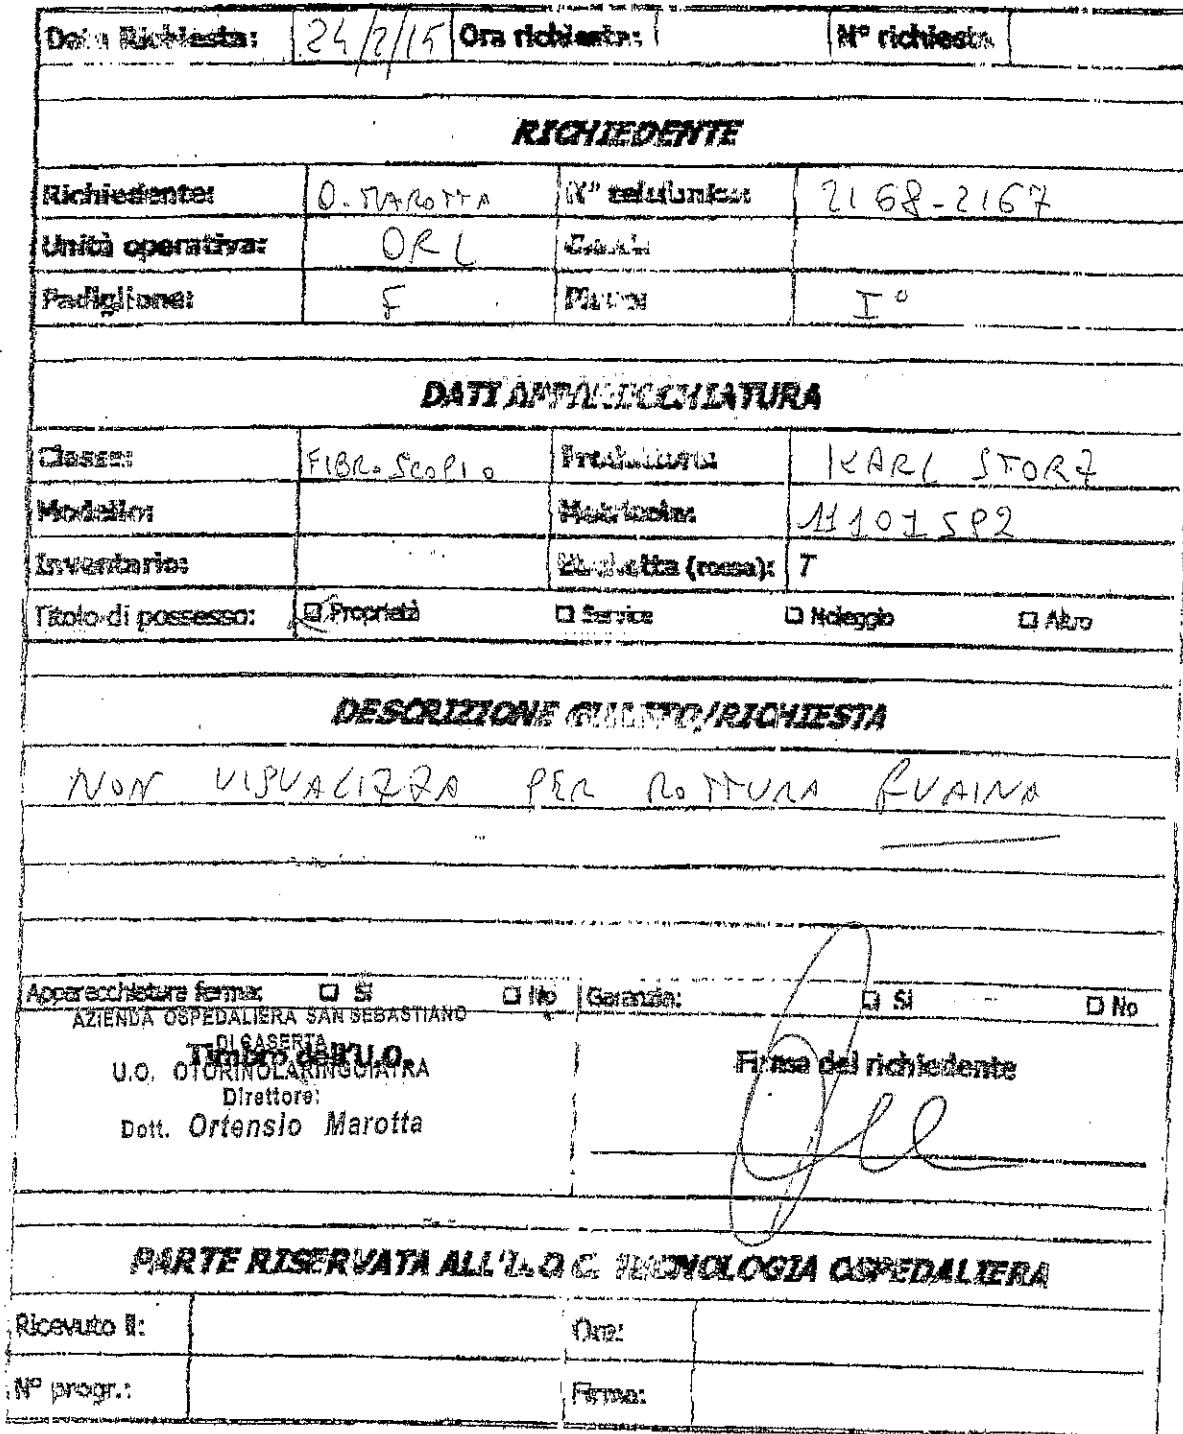 Data Richiesta: 24/2/15 Ora richiesta: N° richiesta
RICHIEDENTE
Richiedente: O. MAROTTA N° telefonico: 2168-2167
Unità operativa: ORL
Padiglione: F Piano: I°
DATI APPARECCHIATURA
Classe: FIBROSCOPIO Produttore: KARL STORZ
Modello: Matricola: 11101SP2
Inventario: Etichetta (rossa): T
Titolo di possesso: Proprietà Service Noleggio Altro
DESCRIZIONE GUASTO/RICHIESTA
NON VISUALIZZA PER ROTTURA GUAINA
Apparecchiatura ferma: Si No Garanzia: Si No
AZIENDA OSPEDALIERA SAN SEBASTIANO
DI CASERTA
Timbro dell'U.O. Firma del richiedente
U.O. OTORINOLARINGOIATRA
Direttore:
Dott. Ortensio Marotta
PARTE RISERVATA ALL'U.O.C. TECNOLOGIA OSPEDALIERA
Ricevuto il: Ora:
N° progr.: Firma: